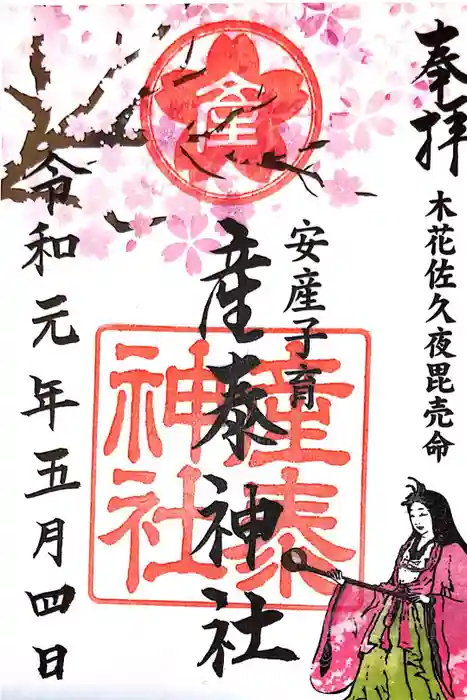 奉拝
木花佐久夜毘売命
安産子育
産泰神社
産
産泰
神社
令和元年五月四日